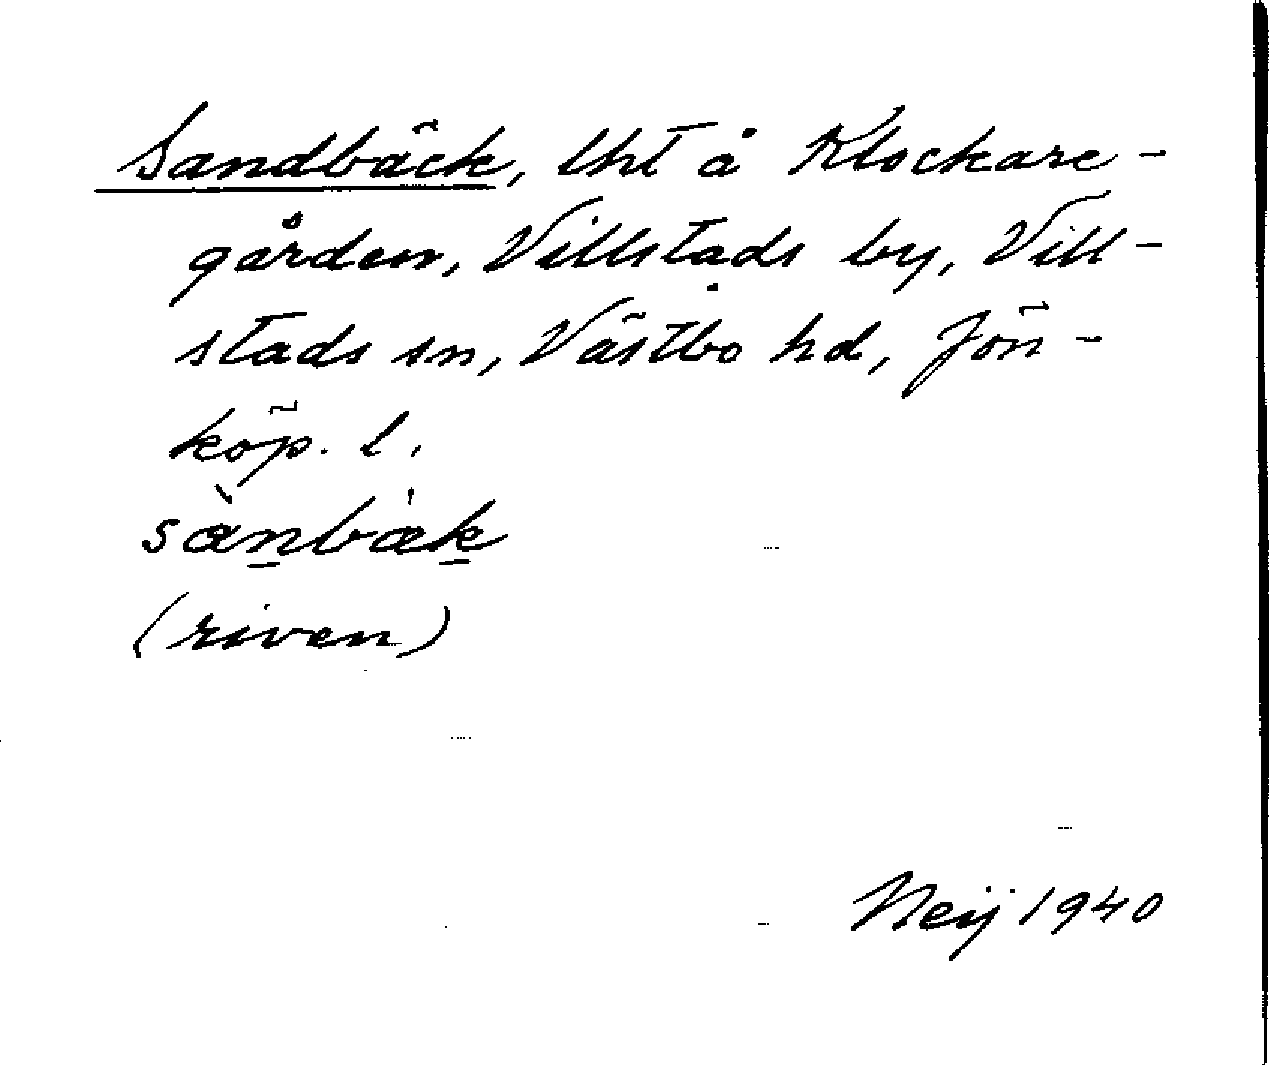 Sandbäck, lht å Klockare-
gården, Villstads by, Vill-
stads sn, Västbo hd, Jön-
köp. l.
sæ̀nbæ̍k
(riven)
Neij 1940